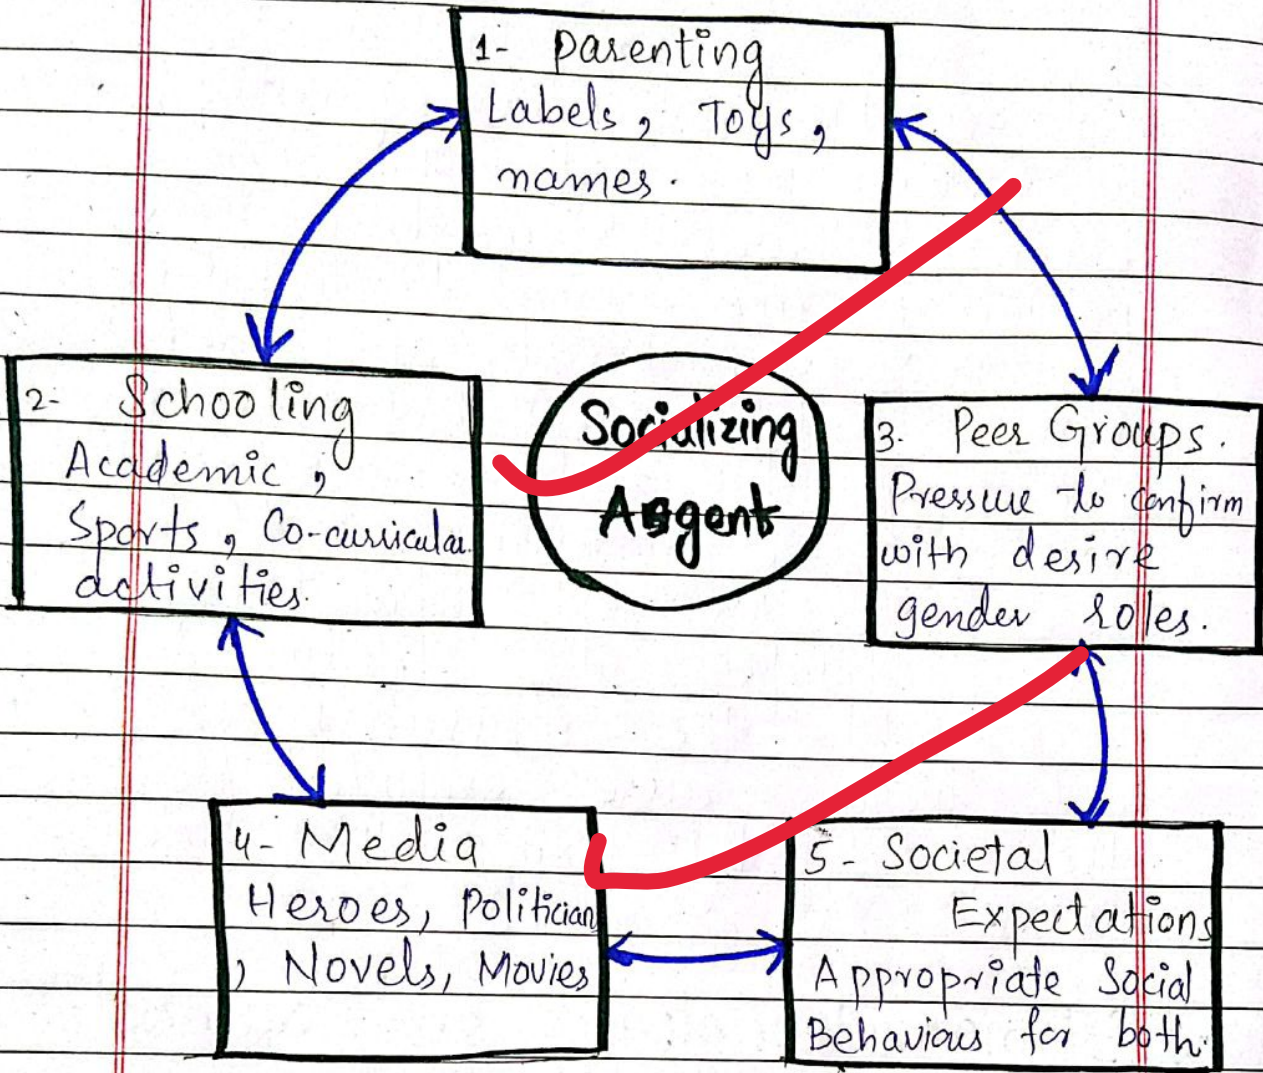 1- Parenting
Labels, Toys,
names.
2- Schooling
Academic,
Sports, Co-curricular
activities.
Socializing
Agent
3. Peer Groups.
Pressure to confirm
with desire
gender roles.
4- Media
Heroes, Politician
, Novels, Movies
5- Societal
Expectations
Appropriate Social
Behaviour for both.